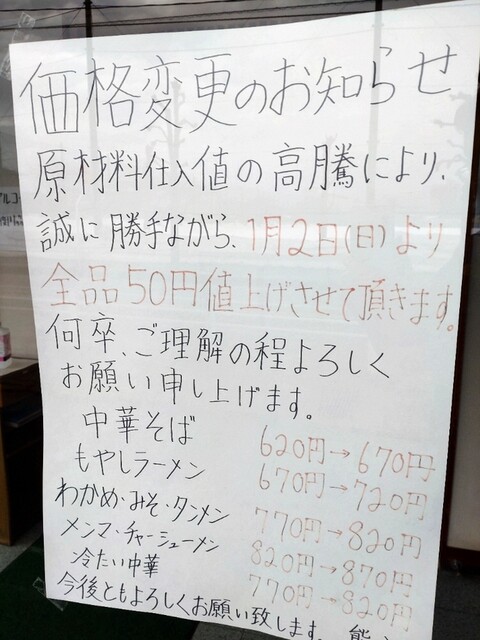 価格変更のお知らせ
原材料仕入値の高騰により、
誠に勝手ながら、1月2日(日)より
全品50円値上げさせて頂きます。
何卒、ご理解の程よろしく
お願い申し上げます。
中華そば 620円→670円
もやしラーメン 670円→720円
わかめ・みそ・タンメン 770円→820円
メンマ・チャーシューメン 820円→870円
冷たい中華 770円→820円
今後ともよろしくお願い致します。